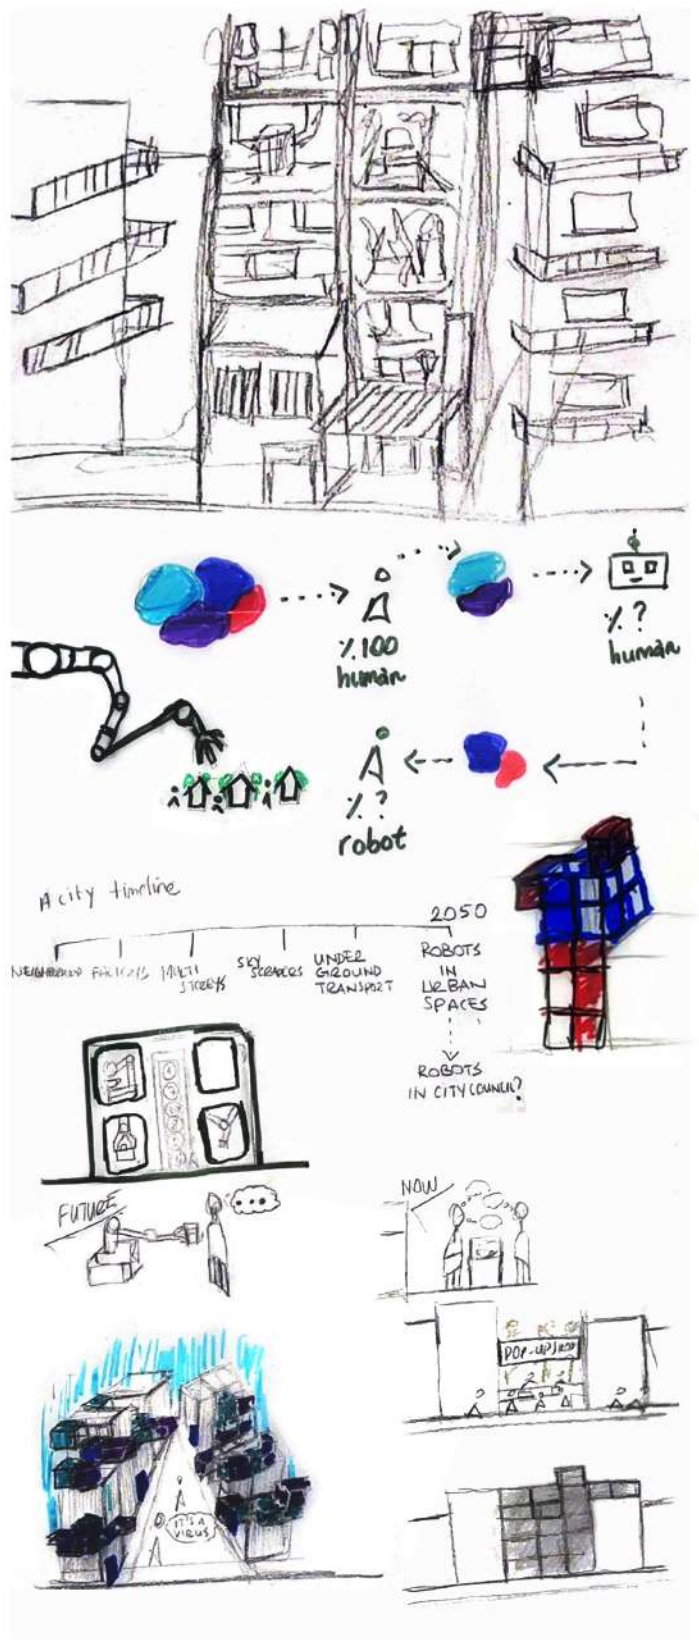 % 100
human
% ?
human
% ?
robot
A city timeline
2050
NEIGHBORHOOD
FACTORIES
MULTI
STOREYS
SKY
SCRAPERS
UNDER
GROUND
TRANSPORT
ROBOTS
IN
URBAN
SPACES
ROBOTS
IN CITY COUNCIL?
FUTURE
NOW
POP-UP SHOP
IT'S A
VIRUS